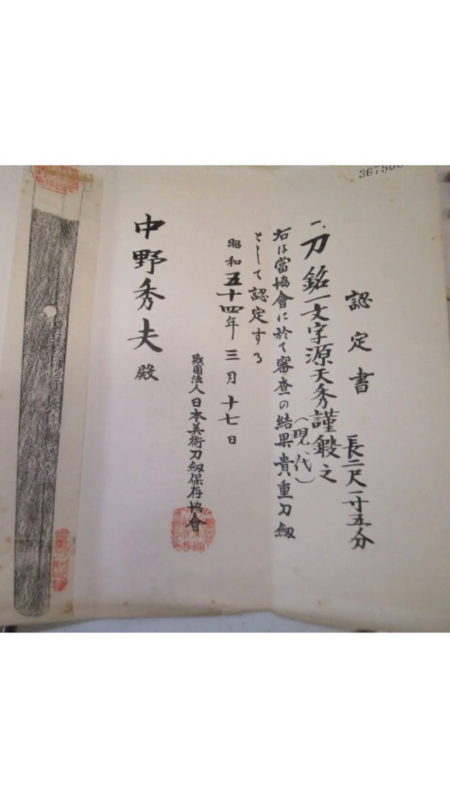 認定書
一、刀 銘 一文字源天秀謹鍛之
長二尺一寸五分
(現代)
右は當協會に於て審査の結果貴重刀剱
として認定する
昭和五十四年三月十七日
財團法人日本美術刀剱保存協會
中野秀夫殿